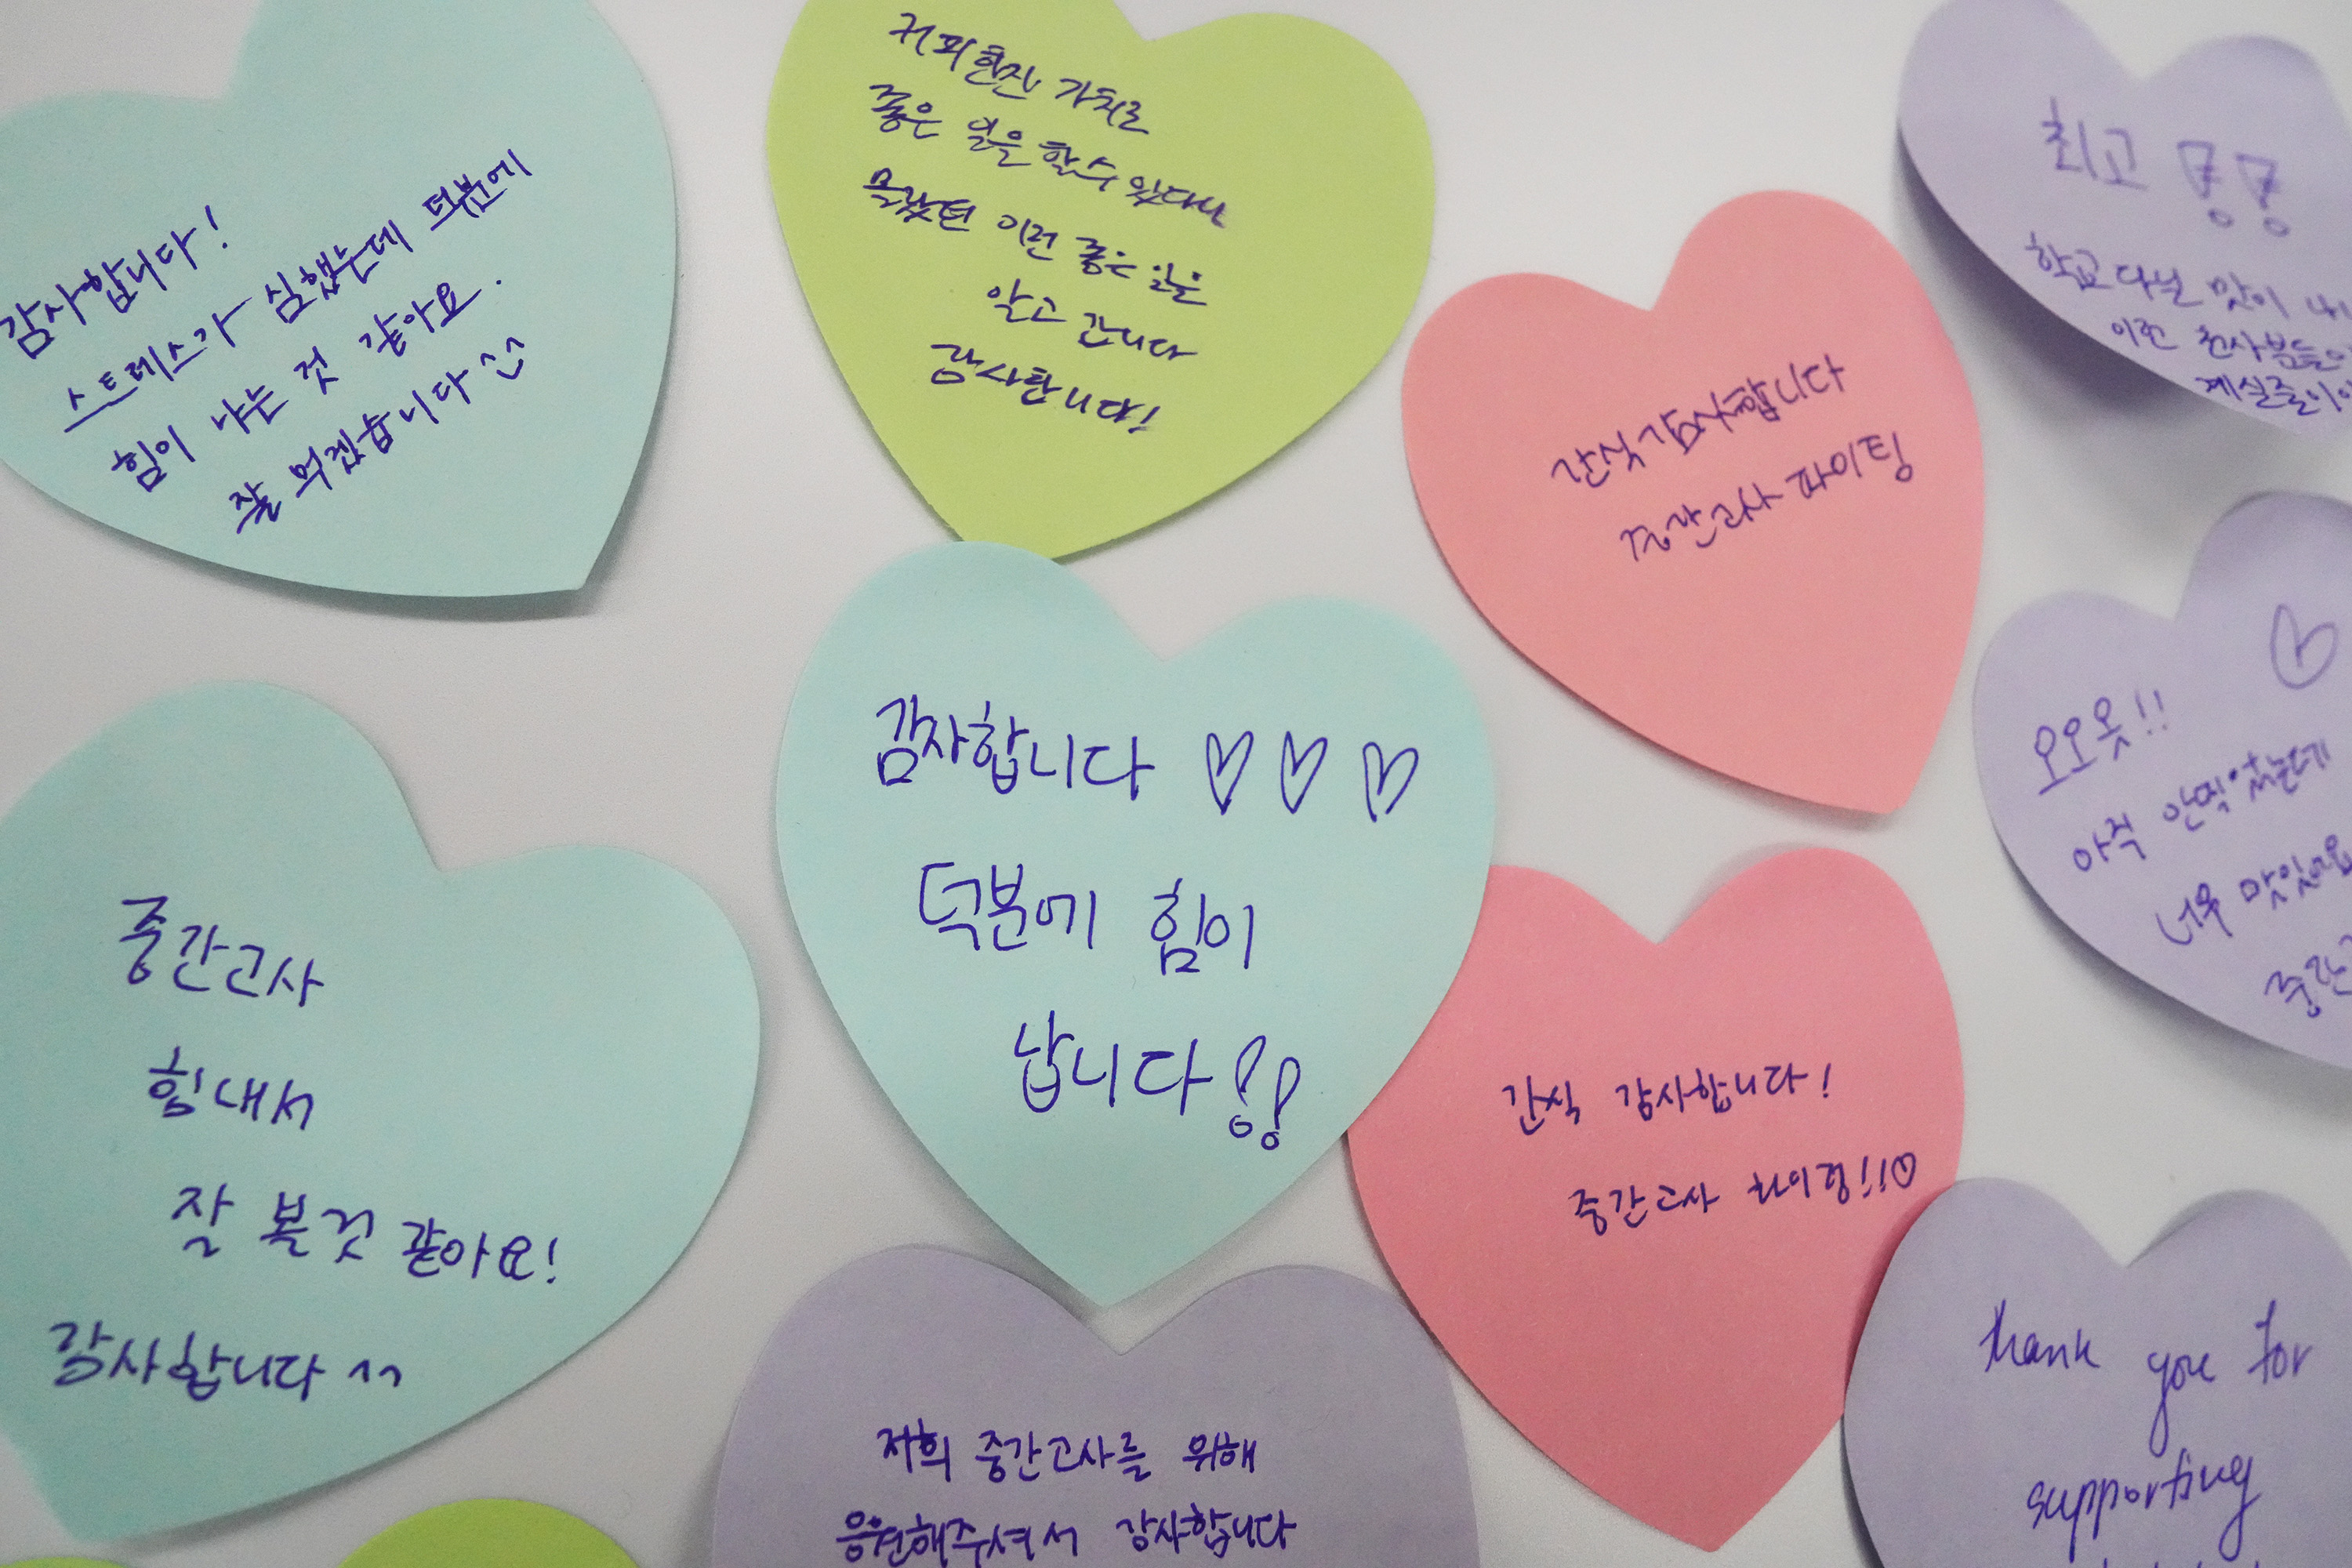 감사합니다!
스트레스가 심했는데 덕분에
힘이 나는 것 같아요.
잘 먹겠습니다 ^^
커피한잔 가치로
좋은 일을 할수 있다니
몰랐던 이런 좋은 일을
알고 갑니다
감사합니다!
간식 감사합니다
중간고사 파이팅
최고
학교 다닐 맛이
이런 천사분들이
계실줄이야
오오옷!!
아직 안먹었는데
너무 맛있어요
중간고
감사합니다 ♡♡♡
덕분에 힘이
납니다!!
중간고사
힘내서
잘 볼것 같아요!
감사합니다 ^^
간식 감사합니다!
중간고사 화이팅!!♡
저희 중간고사를 위해
응원해주셔서 감사합니다
thank you for
supporting